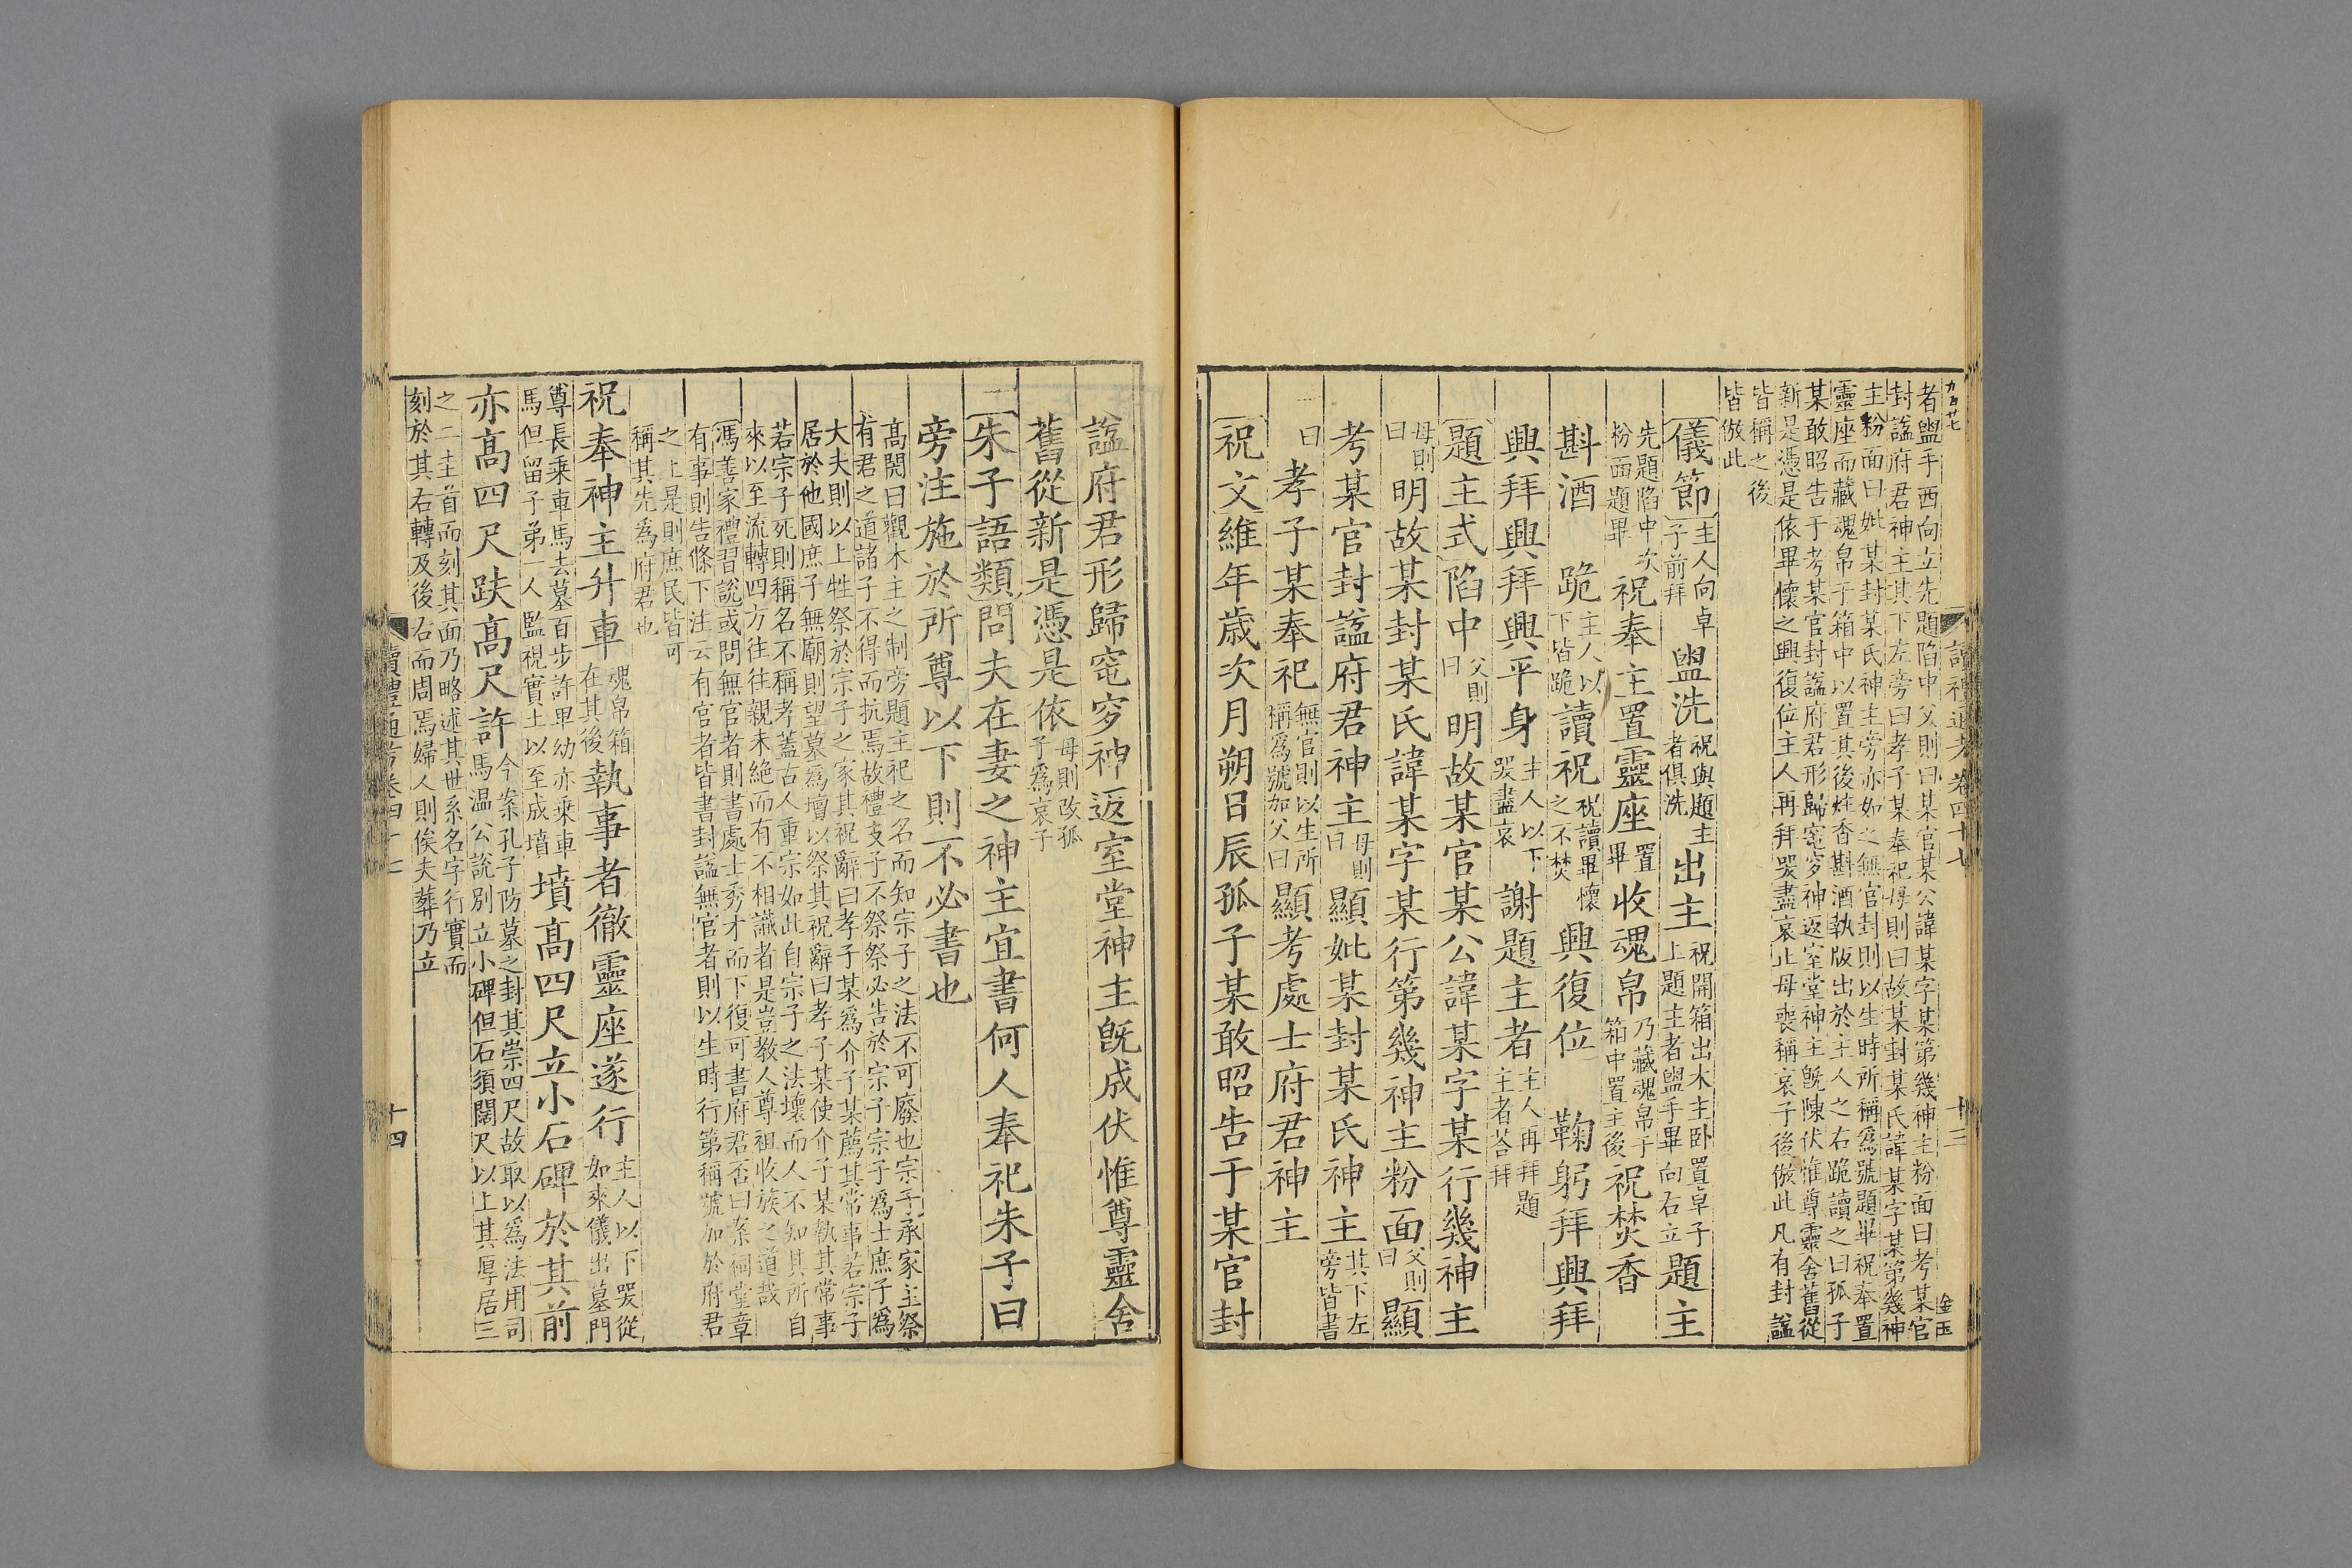 者盥手西向立先題陷中父則曰某官某公諱某字某第幾神主粉面曰考某官
封諡府君神主其下左旁曰孝子某奉祀母則曰故某封某氏諱某字某第幾神
主粉面曰妣某封某氏神主旁亦如之無官封則以生時所稱爲號題畢祝奉置
靈座而藏魂帛于箱中以置其後炷香斟酒執版出於主人之右跪讀之曰孤子
某敢昭告于考某官封諡府君形歸窀穸神返室堂神主旣陳伏惟尊靈舍舊從
新是憑是依畢懷之興復位主人再拜哭盡哀止母喪稱哀子後倣此凡有封諡
皆稱之後
皆倣此
儀節主人向卓子前拜 盥洗祝與題主者俱洗 出主祝開箱出木主卧置卓子上題主者盥手畢向右立 題主
先題陷中次粉面題畢 祝奉主置靈座置畢 收魂帛乃藏魂帛于箱中置主後 祝焚香
斟酒 跪主人以下皆跪 讀祝祝讀畢懷之不焚 興復位 鞠躬拜興拜
興拜興拜興平身主人以下哭盡哀 謝題主者主人再拜題主者荅拜
題主式陷中父則曰 明故某官某公諱某字某行幾神主
母則曰 明故某封某氏諱某字某行第幾神主粉面父則曰 顯
考某官封諡府君神主母則曰 顯妣某封某氏神主其下左旁皆書
曰 孝子某奉祀無官則以生所稱爲號加父曰 顯考處士府君神主
祝文維年歲次月朔日辰孤子某敢昭告于某官封
諡府君形歸窀穸神返室堂神主旣成伏惟尊靈舍
舊從新是憑是依母則改孤子爲哀子
朱子語類問夫在妻之神主宜書何人奉祀朱子曰
旁注施於所尊以下則不必書也
高閌曰觀木主之制旁題主祀之名而知宗子之法不可廢也宗子承家主祭
有君之道諸子不得而抗焉故禮支子不祭祭必告於宗子宗子爲士庶子爲
大夫則以上牲祭於宗子之家其祝辭曰孝子某爲介子某薦其常事若宗子
居於他國庶子無廟則望墓爲壇以祭其祝辭曰孝子某使介子某執其常事
若宗子死則稱名不稱孝蓋古人重宗如此自宗子之法壞而人不知其所自
來以至流轉四方往往親未絶而有不相識者是豈教人尊祖收族之道哉
馮善家禮習說或問無官者則書處士秀才而下復可書府君否曰案祠堂章
有事則告條下注云有官者皆書封諡無官者則以生時行第稱號加於府君
之上是則庶民皆可
稱其先爲府君也
祝奉神主升車魂帛箱在其後 執事者徹靈座遂行主人以下哭從如來儀出墓門
尊長乘車馬去墓百步許卑幼亦乘車馬但留子弟一人監視實土以至成墳 墳高四尺立小石碑於其前
亦高四尺趺高尺許今案孔子防墓之封其崇四尺故取以爲法用司馬温公說別立小碑但石須闊尺以上其厚居三
之二圭首而刻其面乃略述其世系名字行實而
刻於其右轉及後右而周焉婦人則俟夫葬乃立
讀禮通考卷四十七
十三
十四